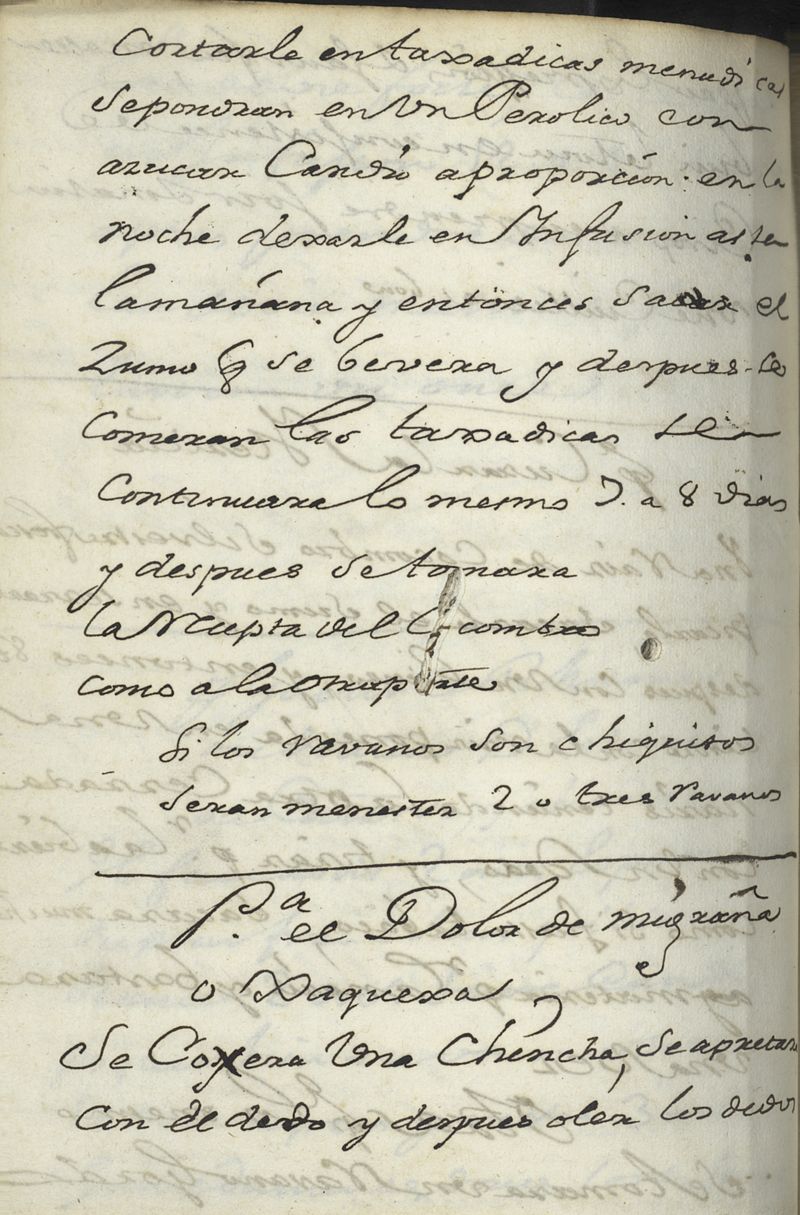 Cortarle en taxadicas menudicas
se pondran en Un Perolico con
azucar Candio a proporción. en la
noche dexarle en Infusion aste
la mañana y entonces sacar el
Zumo q se bevera y despues se
comeran las taxadicas se
continuara lo mesmo 7. a 8 dias
y despues se tomara
la Recepta del Cocombro
como a la
Si los ravanos son chiquitos
seran menester 2 o tres ravanos
P.a el Dolor de migraña
o Xaquexa
Se Coxera Una Chincha, se apretara
Con el dedo y despues oler los dedos